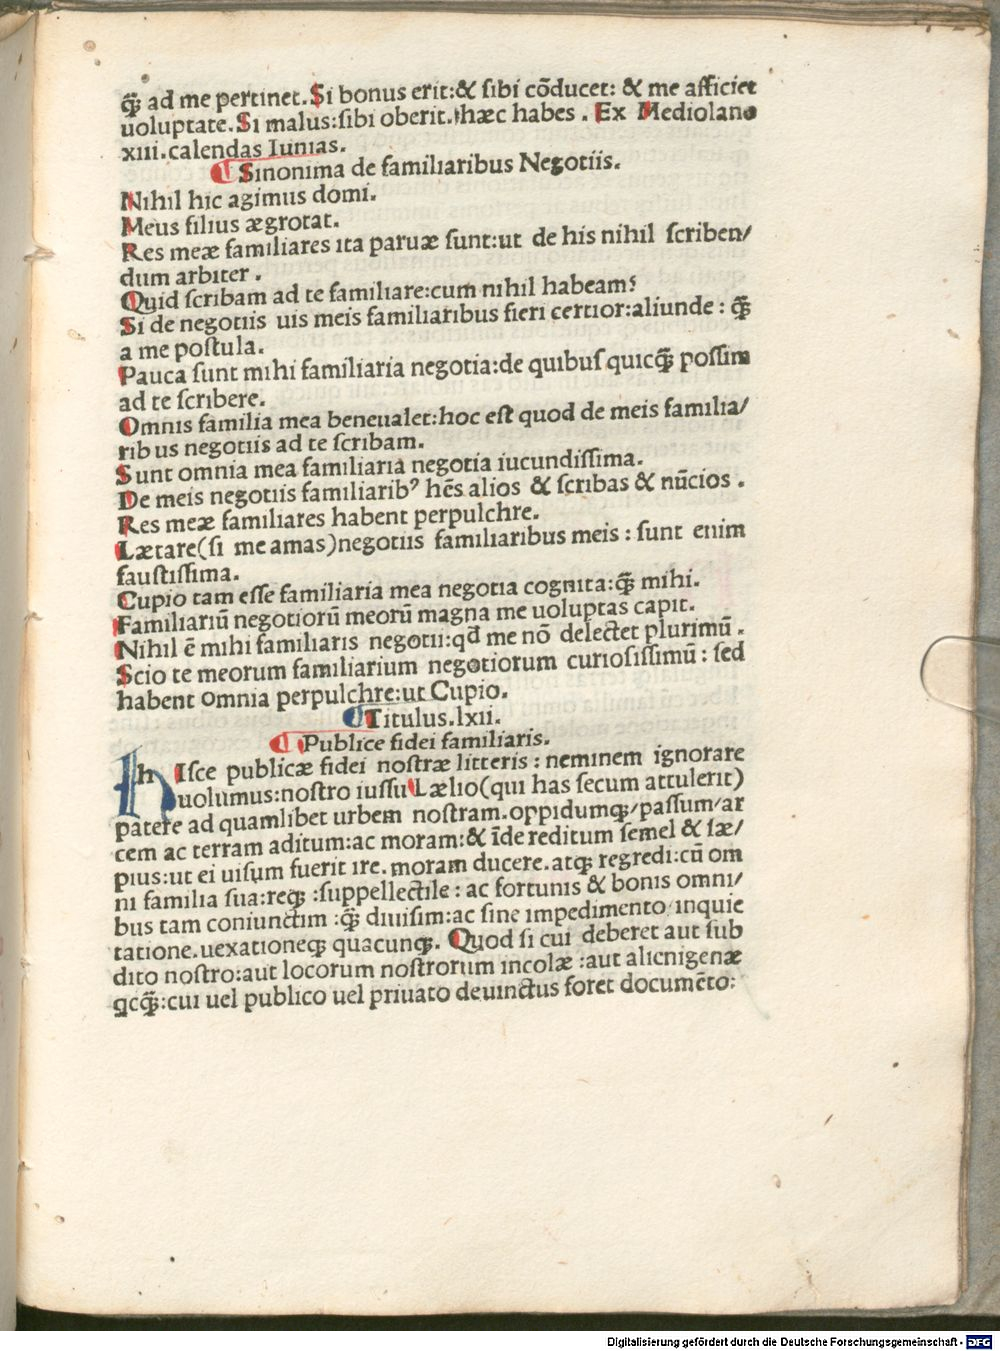 q̃ȝ ad me pertinet. Si bonus erit:& ſibi cōducet: & me afficiet
uoluptate. Si malus:ſibi oberit. hæc habes . Ex Mediolano
xiii. calendas Iunias.
¶ Sinonima de familiaribus Negotiis.
Nihil hic agimus domi.
Meus filius ægrotat.
Res meæ familiares ita paruæ ſunt:ut de his nihil ſcriben/
dum arbiter .
Quid ſcribam ad te familiare:cum nihil habeam?
Si de negotiis uis meis familiaribus fieri certior:aliunde : q̃ȝ
a me poſtula.
Pauca ſunt mihi familiaria negotia:de quibuſ quicq̃ȝ poſſim
ad te ſcribere.
Omnis familia mea beneualet:hoc eſt quod de meis familia/
rib us negotiis ad te ſcribam.
Sunt omnia mea familiaria negotia iucundiſſima.
De meis negotiis familiaribꝰ hēs alios & ſcribas & nūcios .
Res meæ familiares habent perpulchre.
Lætare(ſi me amas)negotiis familiaribus meis : ſunt enim
fauſtiſſima.
Cupio tam eſſe familiaria mea negotia cognita:q̃ȝ mihi.
Familiariū negotiorū meorū magna me uoluptas capit.
Nihil ē mihi familiaris negotii:qd̄ me nō delectet plurimū .
Scio te meorum familiarium negotiorum curioſiſſimū : ſed
habent omnia perpulchre:ut Cupio.
¶ Titulus.lxii.
¶ Publice fidei familiaris.
hIſce publicæ fidei noſtræ litteris : neminem ignorare
uolumus:noſtro iuſſu Lælio(qui has ſecum attulerit)
patere ad quamlibet urbem noſtram.oppidumqȝ/paſſum/ar
cem ac terram aditum:ac moram:& īde reditum ſemel & ſæ/
pius:ut ei uiſum fuerit ire. moram ducere.atqȝ regredi:cū om
ni familia ſua:reqȝ :ſuppellectile : ac fortunis & bonis omni/
bus tam coniunctim :q̃ȝ diuiſim:ac ſine impedimento/inquie
tatione.uexationeqȝ quacunqȝ. Quod ſi cui deberet aut ſub
dito noſtro:aut locorum noſtrorum incolæ :aut alienigenæ
qcq̃ȝ:cui uel publico uel priuato deuinctus foret documēto:
Digitalisierung gefördert durch die Deutsche Forschungsgemeinschaft - DFG